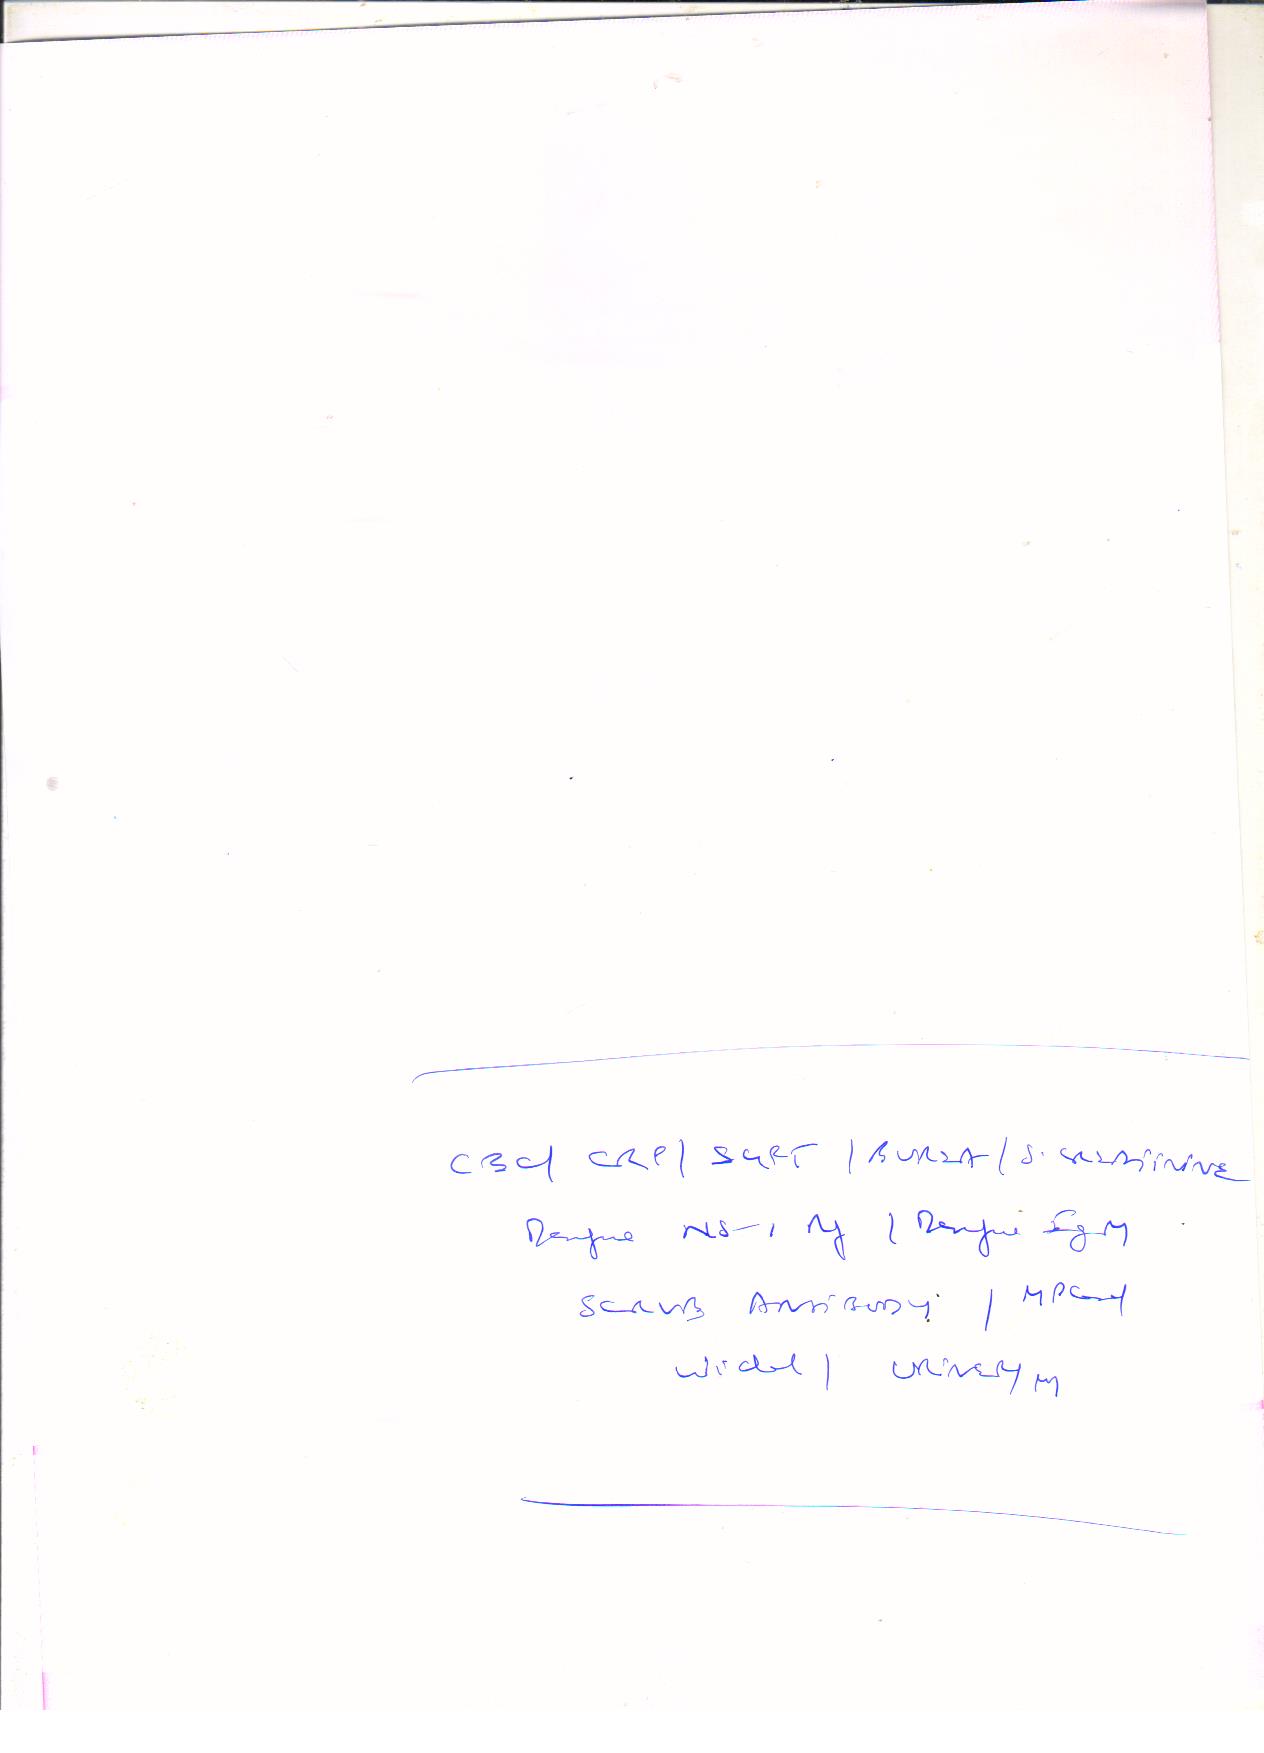 CBC/ CRP/ SGPT / BUREA / S. CREATININE
Dengue NS-1 Ag / Dengue IgM
SCRUB ANTIBODY / MP Card
Widal / URINE R/M